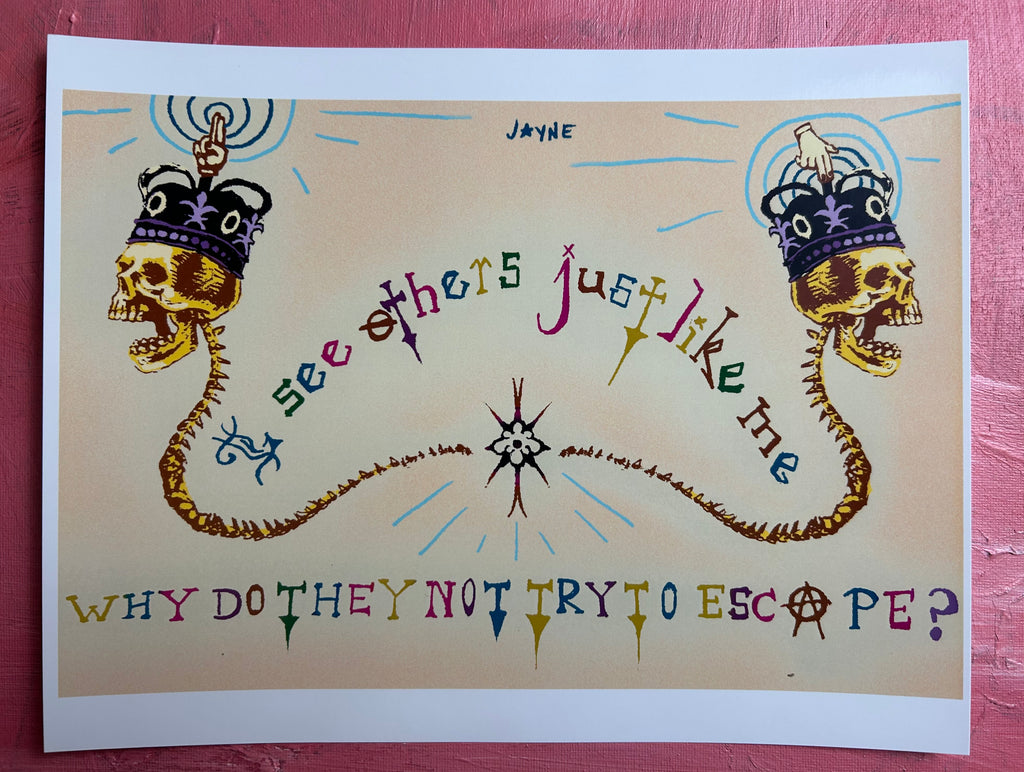 JAYNE
I see others just like me
WHY DO THEY NOT TRY TO ESCAPE?